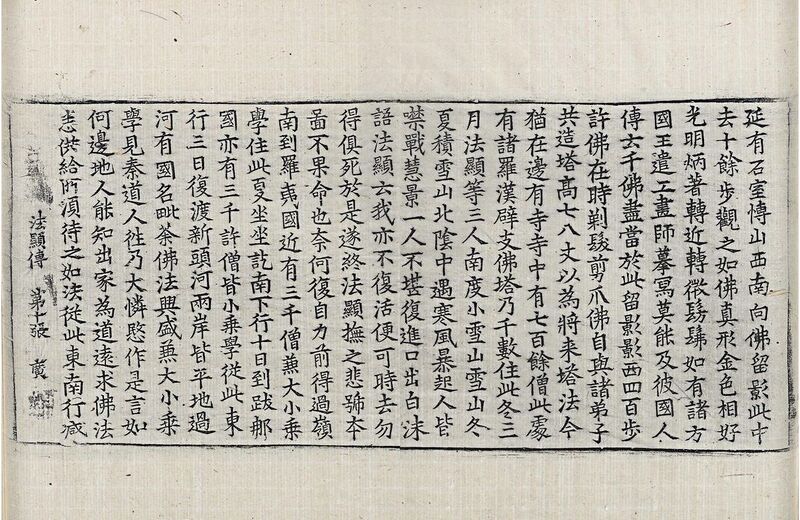 延有石室愽山西南向佛留影此中
去十餘步觀之如佛真形金色相好
光明炳著轉近轉微髣髴如有諸方
國王遣工畫師摹寫莫能及彼國人
傳云千佛盡當於此留影影西四百步
許佛在時剃髮剪爪佛自與諸弟子
共造塔髙七八丈以為將来塔法今
猶在邊有寺寺中有七百餘僧此處
有諸羅漢辟支佛塔乃千數住此冬三
月法顯等三人南度小雪山雪山冬
夏積雪山北陰中遇寒風暴起人皆
噤戰慧景一人不堪復進口出白沫
語法顯云我亦不復活便可時去勿
得俱死於是遂終法顯撫之悲號夲
啚不果命也奈何復自力前得過嶺
南到羅夷國近有三千僧兼大小乗
學住此夏坐坐訖南下行十日到跋那
國亦有三千許僧皆小乗學從此東
行三日復渡新頭河兩岸皆平地過
河有國名毗荼佛法興盛兼大小乗
學見秦道人徃乃大憐愍作是言如
何邊地人能知出家為道遠求佛法
悉供給所湏待之如法從此東南行減
法顯傳 第十張 廣